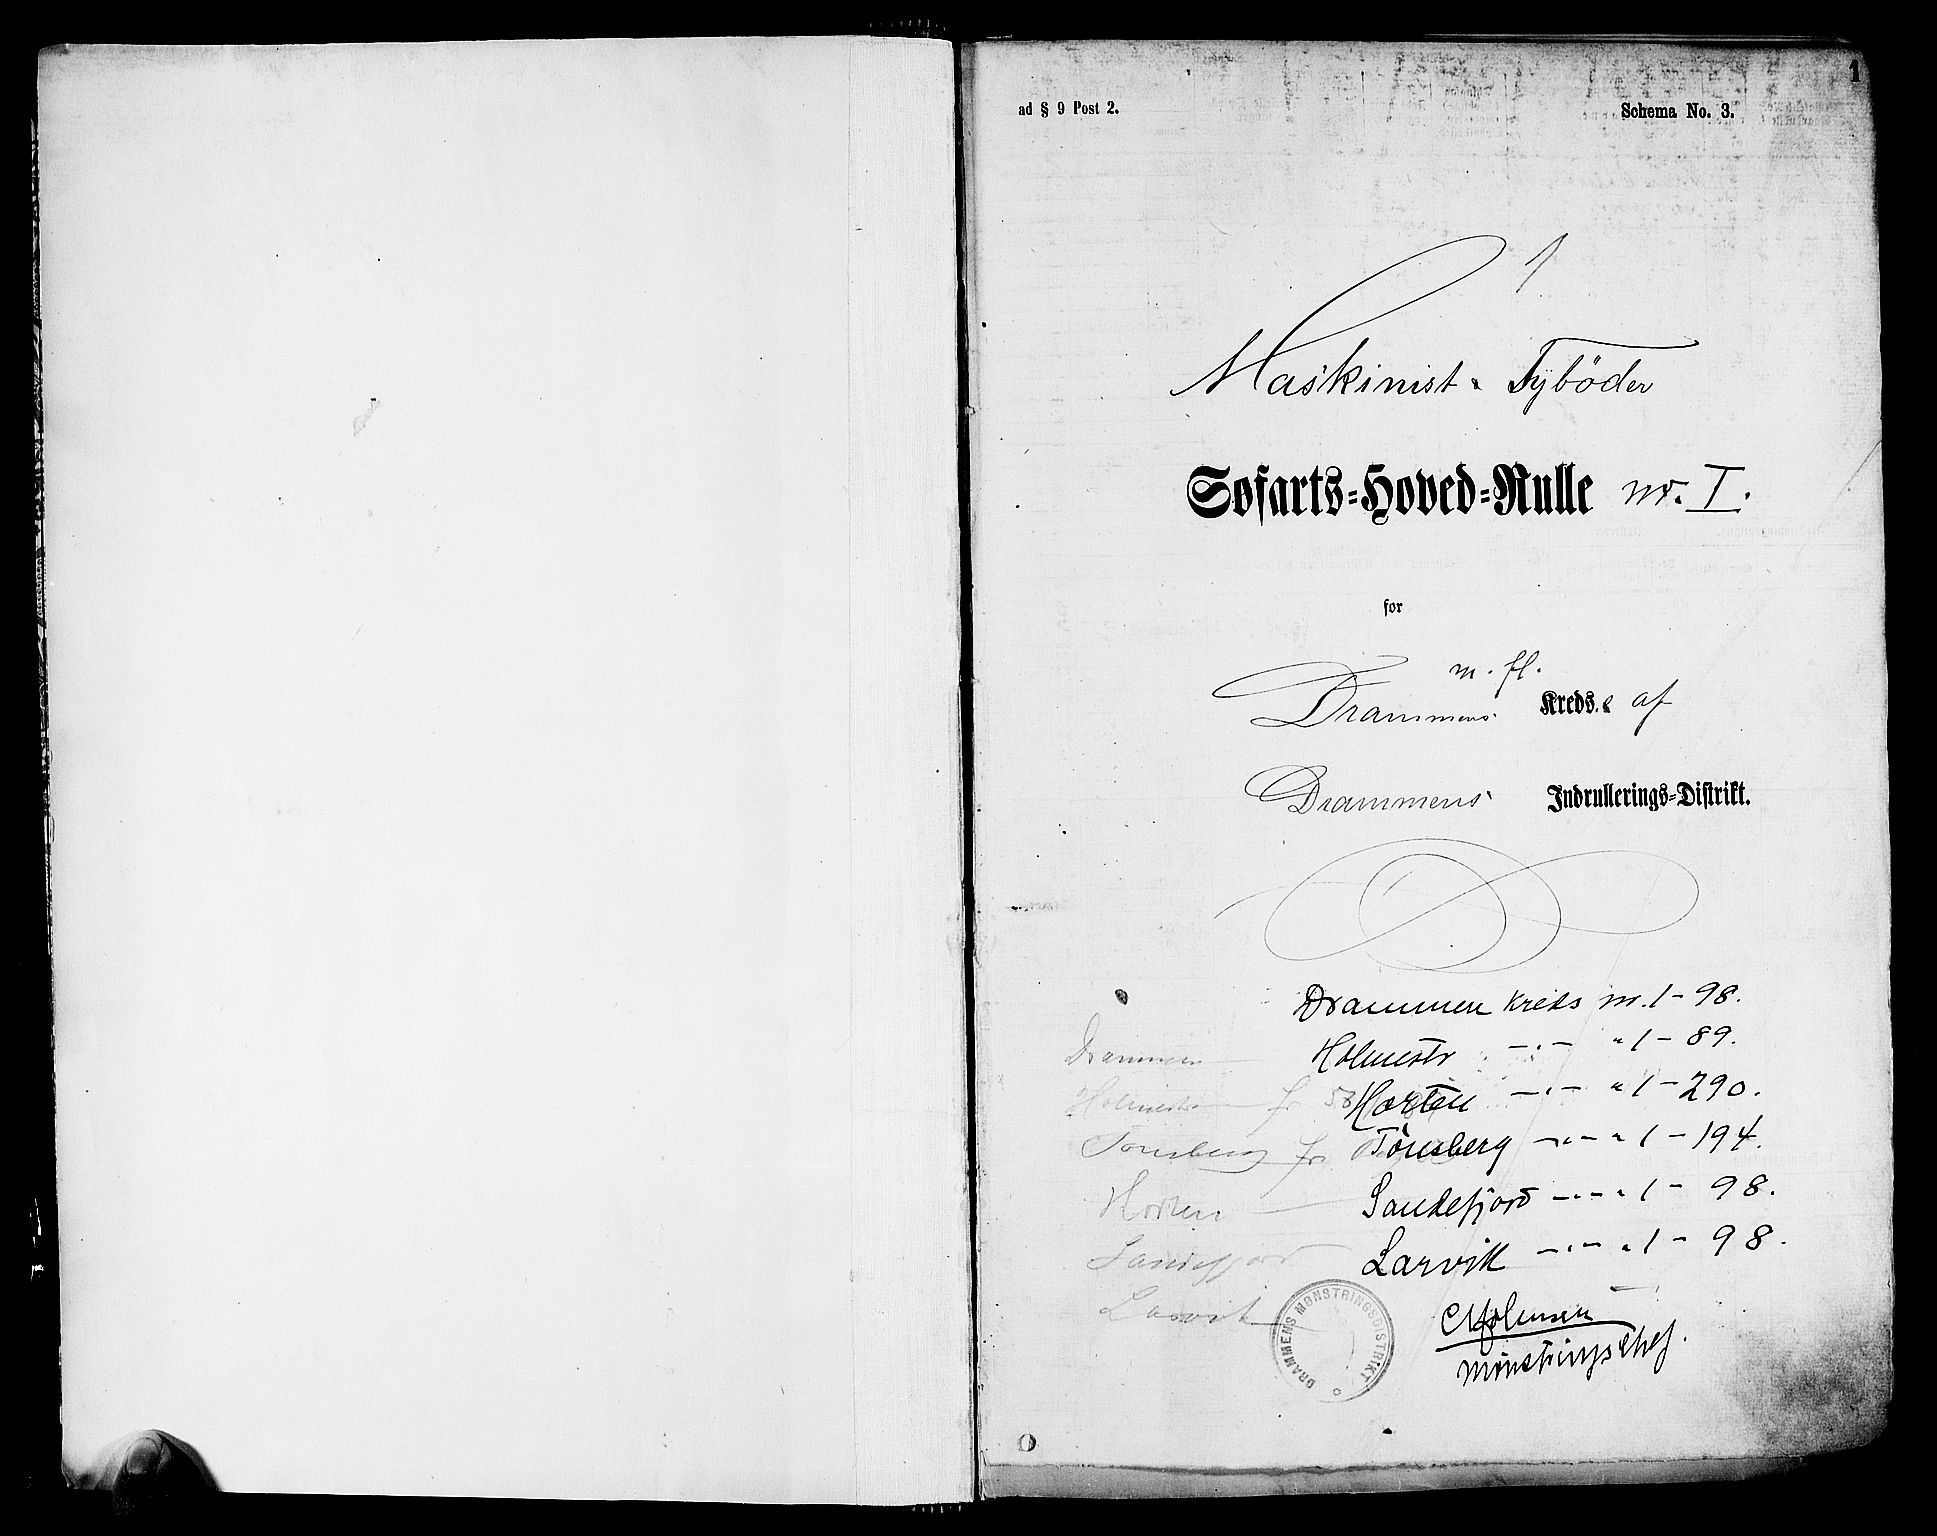 1
ad § 9 Post 2. Schema No. 3.
1
Maskinist & Fyböder
Søfarts-Hoved-Rulle nr. I.
for
m. fl.
Drammens Kreds.e af
Drammens Indrullerings-Distrikt.
Drammen kreds nr. 1 - 98.
Holmestr — " — " 1 - 89.
Horten — " — " 1 - 290.
Tönsberg — " — " 1 - 194.
Sandefjord — " — " 1 - 98.
Larvik — " — " 1 - 98.
Drammen
Holmestr fr 58
Tønsberg fr
Horten
Sandefjord
Larvik
DRAMMENS MØNSTRINGSDISTRIKT
Mønstringschef.